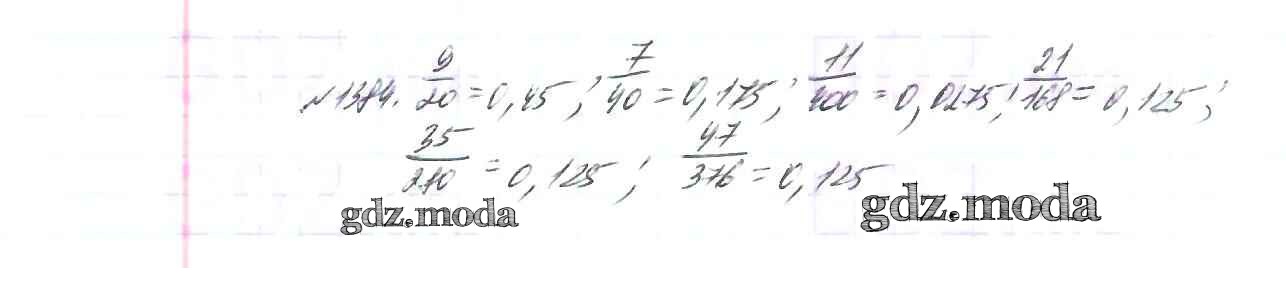 №1384. 9/20 = 0,45; 7/40 = 0,175; 11/400 = 0,0275; 21/168 = 0,125;
35/280 = 0,125; 47/376 = 0,125
gdz.moda gdz.moda